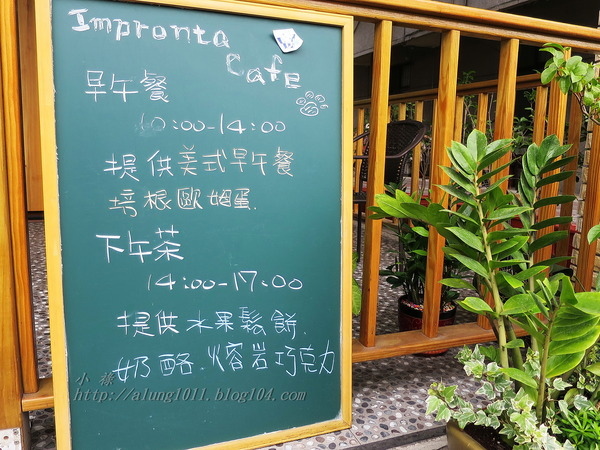 Impronta
Cafe
早午餐
10:00-14:00
提供美式早午餐
培根歐姆蛋.
下午茶
14:00-17:00
提供水果鬆餅.
奶酪.熔岩巧克力
小祿
http://alung1011.blog104.com